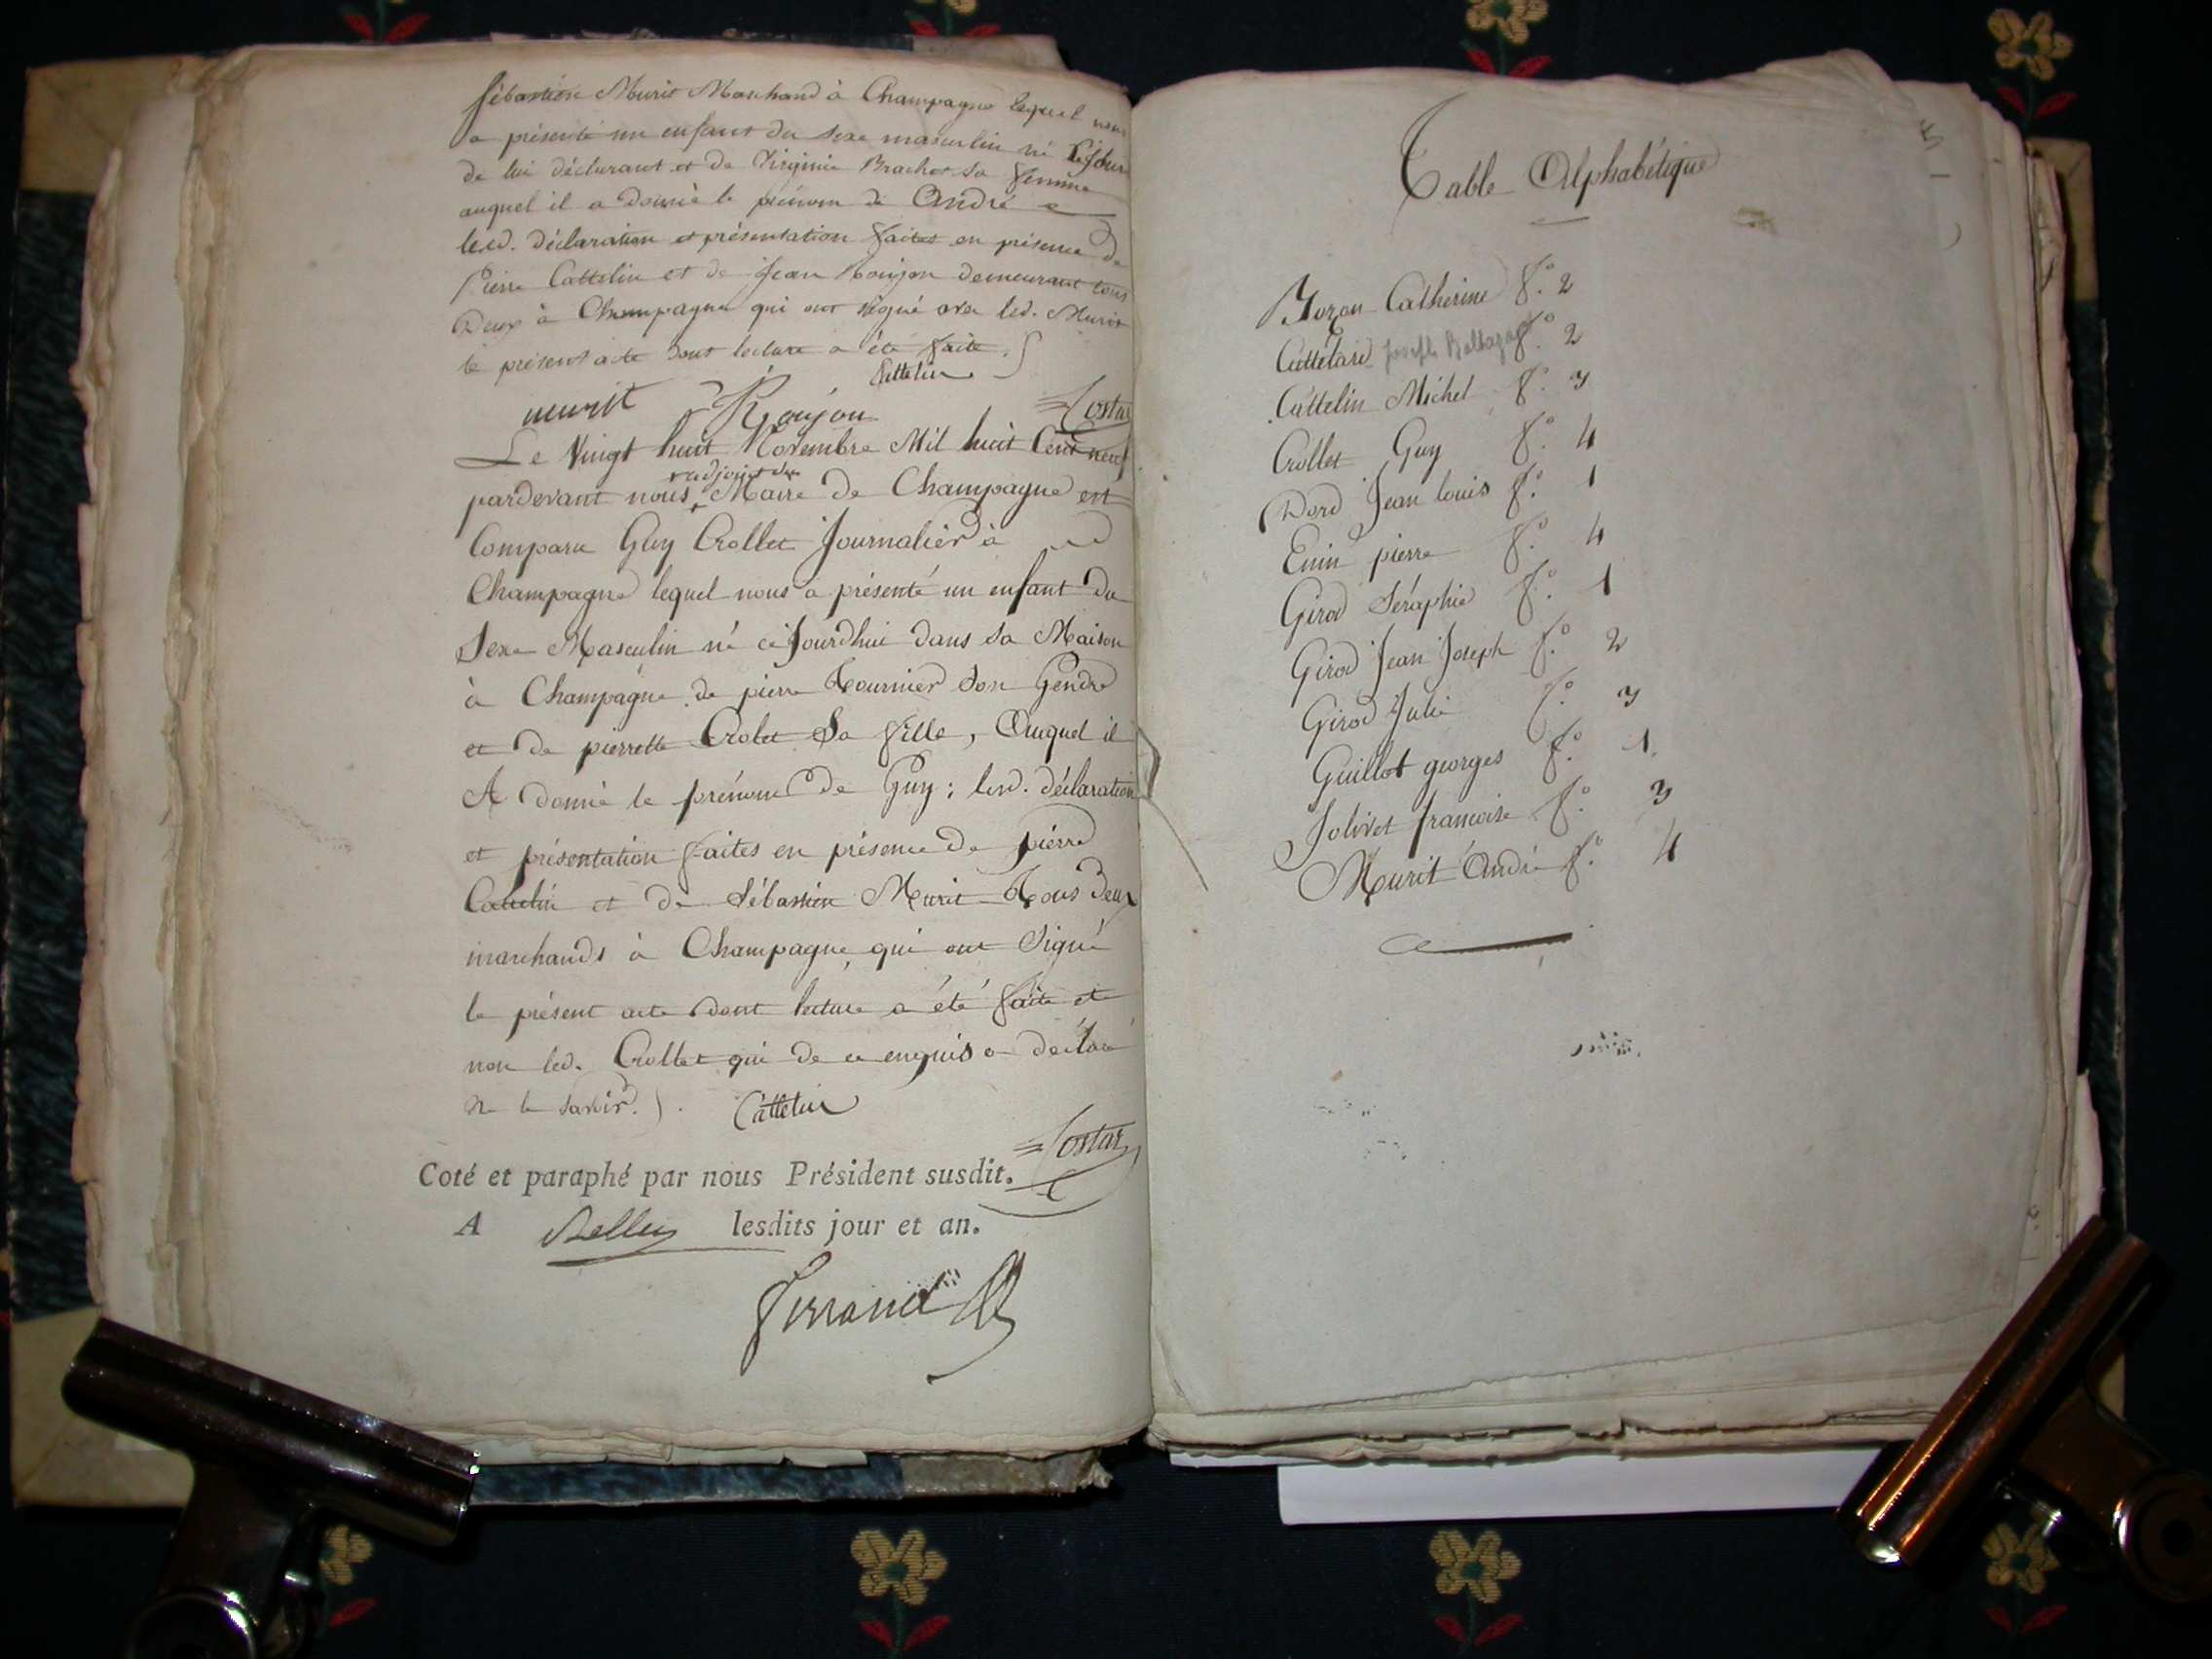 Sébastien Murit Marchand à Champagne lequel nous
a présenté un enfant du sexe masculin né ce jour
de lui déclarant et de Virginie Brachet sa femme
auquel il a donné le prénom de André
lesd. déclaration et présentation faites en présence de
Pierre Cattelin et de Jean Roujon demeurant tous
Deux à Champagne qui ont signé avec led. Murit
le présent acte dont lecture a été faite.
Cattelin
murit Roujon Costaz
Le Vingt huit Novembre Mil huit Cent neuf
pardevant nous adjoint du Maire de Champagne est
Comparu Guy Crollet Journalier à
Champagne lequel nous a présenté un enfant du
Sexe Masculin né ce Jourdhui dans sa Maison
à Champagne de pierre Tournier son Gendre
et de pierrette Crolet Sa fille, Auquel il
A donné le prénom de Guy; lesd. déclaration
et présentation faites en présence de pierre
Cattelin et de Sébastien Murit Tous deux
marchands à Champagne qui ont Signé
le présent acte dont lecture a été faite et
non led. Crollet qui de ce enquis a déclaré
ne le savoir.
Cattelin
Costaz
Coté et paraphé par nous Président susdit.
A Belley lesdits jour et an.
Ferrand
Table Alphabétique
Bozon Catherine f.º 2
Cattelard Joseph Baltazar f.º 2
Cattelin Michel f.º 3
Crollet Guy f.º 4
Dord Jean louis f.º 1
Enin pierre f.º 4
Girod Séraphie f.º 1
Girod Jean Joseph f.º 2
Girod Julie f.º 3
Guillot georges f.º 1.
Jolivet francoise f.º 3
Murit André f.º 4